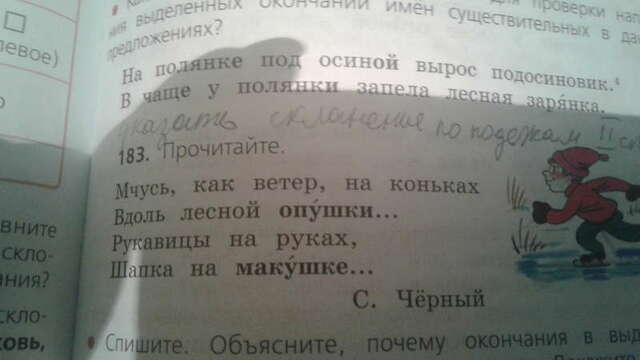 для проверки
ния выделенных окончаний имён существительных в
предложениях?
левое)
На полянке под осиной вырос подосиновик.⁴
В чаще у полянки запела лесная заря́нка.
указать склонение по подежам II
183. Прочитайте.
Мчусь, как ветер, на коньках
Вдоль лесной опу́шки...
Рукавицы на руках,
Шапка на маку́шке...
С. Чёрный
вните
скло-
ания?
скло-
ковь,
• Спишите. Объясните, почему окончания в